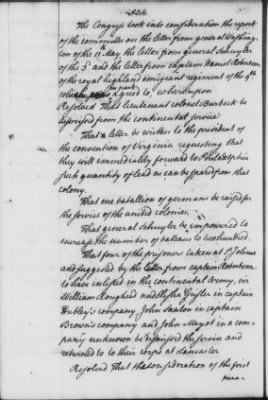 334.
The Congress took into consideration the report
of the committee on the letter from general Washing-
ton of the 11th May, the letter from general Schuyler
of the 3d and the letter from captain Daniel Robertson
of the royal highland emigrant regiment of the 9th
report
agreed to, whereupon
Resolved That lieutenant colonel Burbeck be
dismissed from the continental service
That a letter be written to the president of
the convention of Virginia requesting that
they will immediately forward to Philadelphia
such quantity of lead as can be spared from that
colony.
That one battallion of germans be raised for
the service of the united colonies.
That general Schuyler be impowered to
encrease the number of batteaus to two hundred.
That four of the prisoners taken at St Johns
and suggested by the letter from captain Robertson
to have enlisted in the continental army, viz
William Rougheid and in captain
Hubley's company, John in captain
Brown's company and John in a com-
pany unknown be dismissed the service and
returned to to their corps at Lancaster
Resolved That the consideration of the first
para-